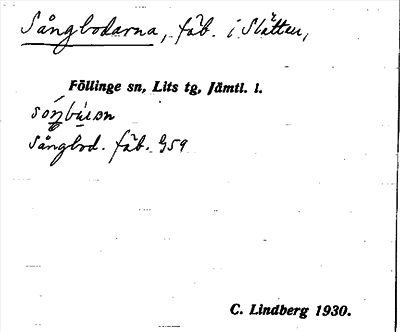 Sångbodarna, fäb. i Slätten,
Föllinge sn, Lits tg, Jämtl. l.
Sångbod. fäb. 959
C. Lindberg 1930.